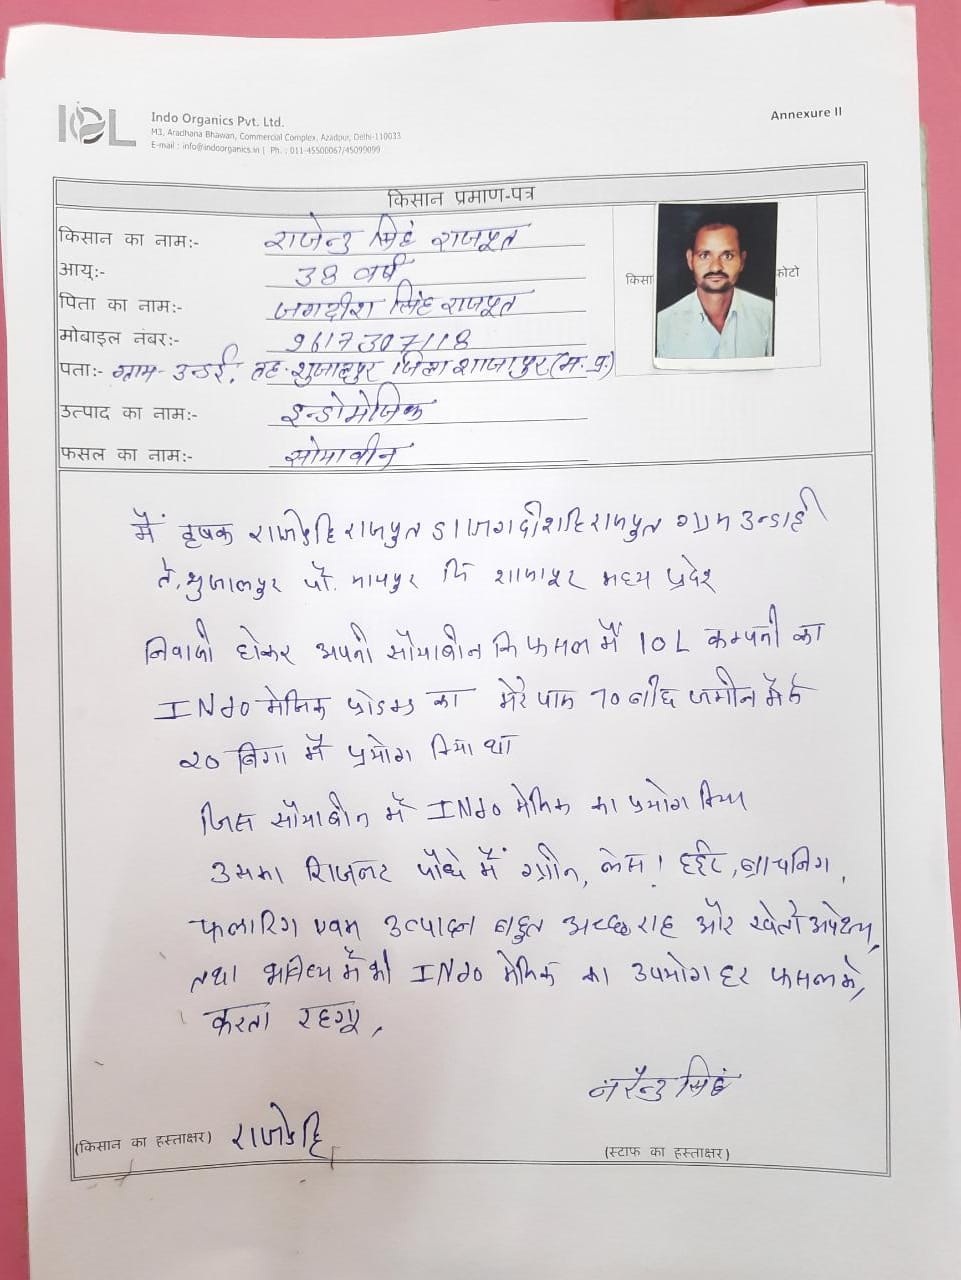 IOL
Indo Organics Pvt. Ltd.
M3, Aradhana Bhawan, Commercial Complex, Azadpur, Delhi-110033
E-mail : info@indoorganics.in | Ph. : 011-45500067/45099099
Annexure II
किसान प्रमाण-पत्र
किसान का नामः- राजेन्द्र सिंह राजपूत
आयुः- 38 वर्ष
पिता का नामः- जगदीश सिंह राजपूत
मोबाइल नंबरः- 9617307118
पताः- ग्राम- उन्डई, तह. शुजालपुर जिला शाजापुर (म.प्र.)
उत्पाद का नामः- इन्डोमेजिक
फसल का नामः- सोयाबीन
किसा
फोटो
मैं कृषक राजेन्द्रसिंह राजपुत S/o जगदीशसिंह राजपुत ग्राम उन्डाई
ते. शुजालपुर पो. जि शाजापुर मध्य प्रदेश
निवासी होकर अपनी सोयाबीन कि फसल में IOL कम्पनी का
INdo मेजिक का मेरे पास 70 बीघा जमीन में से
20 बिगा में प्रयोग किया था
जिस सोयाबीन में INdo मेजिक का प्रयोग किया
उसका रिजल्ट पौधे में ग्रीन, हाईट, ब्रांचनिंग,
फलारिंग एवम उत्पादन बहुत अच्छा रहा और
तथा भविष्य में भी INdo मेजिक का उपयोग हर फसल में,
करता रहूगा,
नरेन्द्र सिंह
(किसान का हस्ताक्षर) राजेन्द्रसिंह
(स्टाफ का हस्ताक्षर)